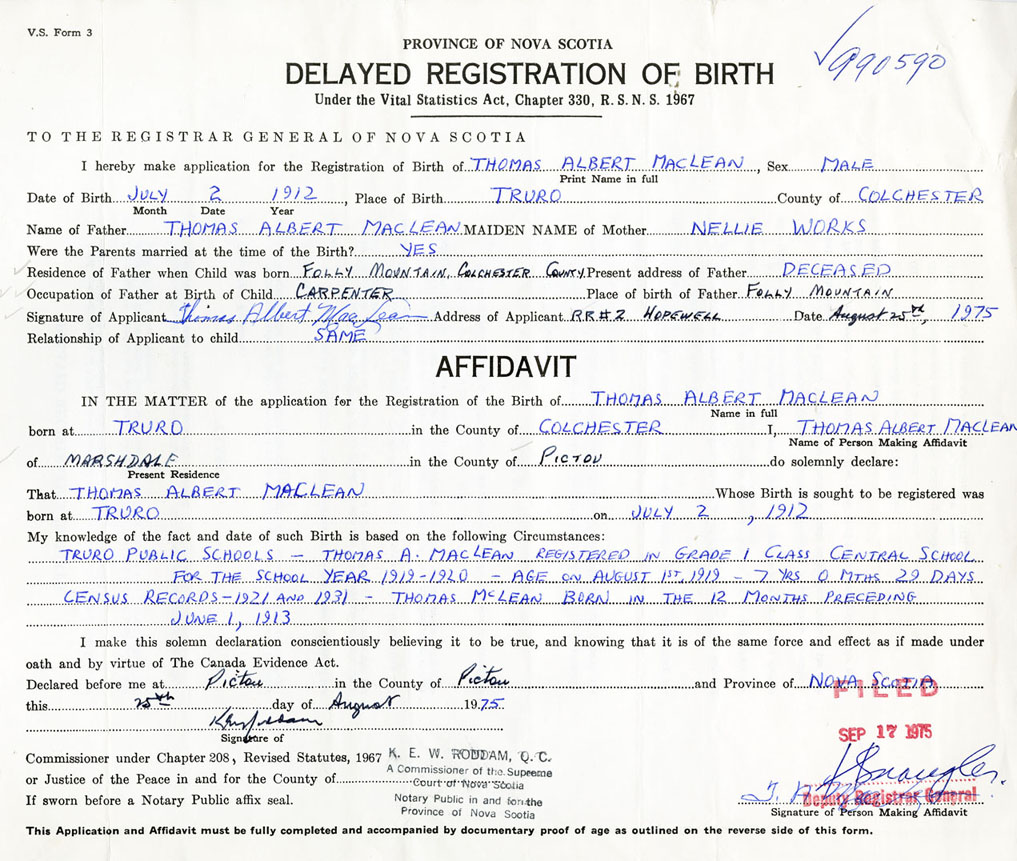 V.S. Form 3
PROVINCE OF NOVA SCOTIA
990590
DELAYED REGISTRATION OF BIRTH
Under the Vital Statistics Act, Chapter 330, R.S.N.S. 1967
TO THE REGISTRAR GENERAL OF NOVA SCOTIA
I hereby make application for the Registration of Birth of THOMAS ALBERT MACLEAN, Sex MALE
Print Name in full
Date of Birth JULY 2 1912, Place of Birth TRURO County of COLCHESTER
Month Date Year
Name of Father THOMAS ALBERT MACLEAN MAIDEN NAME of Mother NELLIE WORKS
Were the Parents married at the time of the Birth? YES
Residence of Father when Child was born FOLLY MOUNTAIN, COLCHESTER COUNTY Present address of Father DECEASED
Occupation of Father at Birth of Child CARPENTER Place of birth of Father FOLLY MOUNTAIN
Signature of Applicant Thomas Albert MacLean Address of Applicant RR#2 HOPEWELL Date August 25th, 1975
Relationship of Applicant to child SAME
AFFIDAVIT
IN THE MATTER of the application for the Registration of the Birth of THOMAS ALBERT MACLEAN
Name in full
born at TRURO in the County of COLCHESTER I, THOMAS ALBERT MACLEAN
Name of Person Making Affidavit
of MARSHDALE in the County of PICTOU do solemnly declare:
Present Residence
That THOMAS ALBERT MACLEAN Whose Birth is sought to be registered was
born at TRURO on JULY 2, 1912
My knowledge of the fact and date of such Birth is based on the following Circumstances:
TRURO PUBLIC SCHOOLS - THOMAS A. MACLEAN REGISTERED IN GRADE 1 CLASS CENTRAL SCHOOL
FOR THE SCHOOL YEAR 1919-1920 - AGE ON AUGUST 1ST, 1919 - 7 YRS 0 MTHS 29 DAYS
CENSUS RECORDS - 1921 AND 1931 - THOMAS McLEAN BORN IN THE 12 MONTHS PRECEDING
JUNE 1, 1913
I make this solemn declaration conscientiously believing it to be true, and knowing that it is of the same force and effect as if made under
oath and by virtue of The Canada Evidence Act.
Declared before me at Pictou in the County of Pictou and Province of NOVA SCOTIA
FILED
this 25th day of August 1975.
Signature of
SEP 17 1975
Commissioner under Chapter 208, Revised Statutes, 1967
K. E. W. RODDAM, Q. C.
A Commissioner of the Supreme
or Justice of the Peace in and for the County of
Court of Nova Scotia
If sworn before a Notary Public affix seal.
Notary Public in and for the
Province of Nova Scotia
Deputy Registrar General
Signature of Person Making Affidavit
This Application and Affidavit must be fully completed and accompanied by documentary proof of age as outlined on the reverse side of this form.